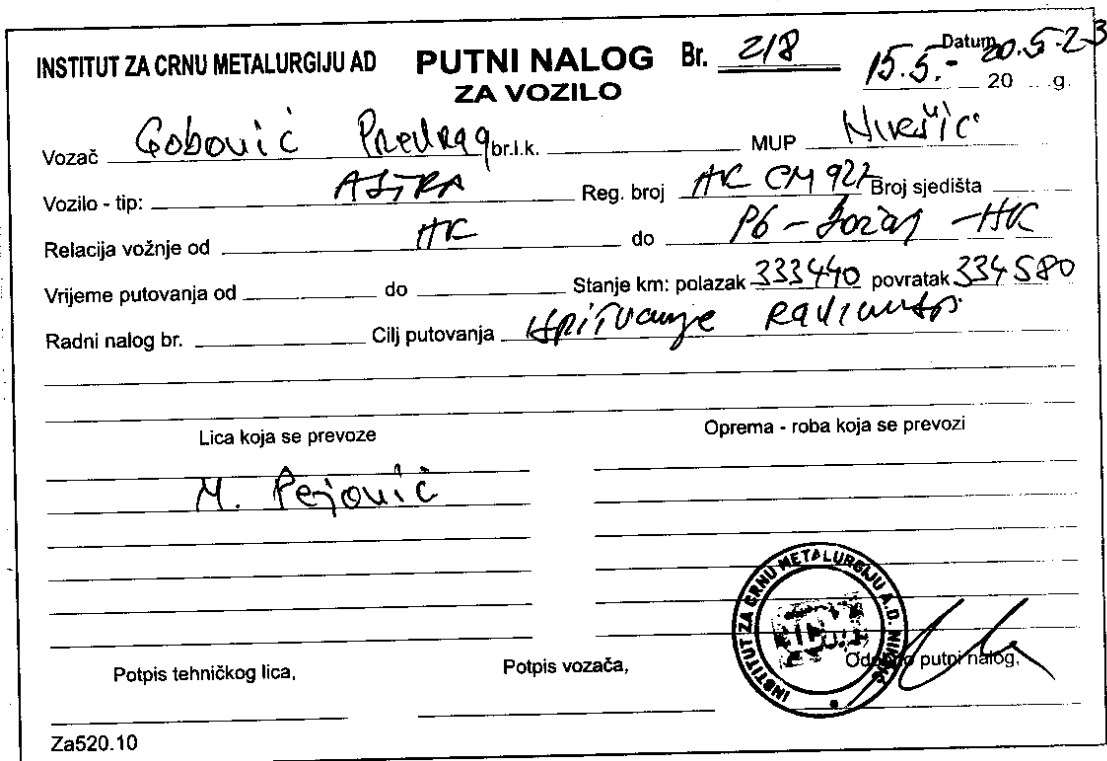 INSTITUT ZA CRNU METALURGIJU AD PUTNI NALOG Br. 218 Datum 15.5.- 20.5-23
ZA VOZILO 20 g.
Vozač Gobović Predrag br.l.k. MUP Nikšić
Vozilo - tip: ASTRA Reg. broj NK CM 922 Broj sjedišta
Relacija vožnje od NK do PG - - NK
Vrijeme putovanja od do Stanje km: polazak 333440 povratak 334580
Radni nalog br. Cilj putovanja Ispitivanje
Lica koja se prevoze Oprema - roba koja se prevozi
M. Pejović
INSTITUT ZA CRNU METALURGIJU A.D. NIKŠIĆ
Potpis tehničkog lica, Potpis vozača, Odobrio putni nalog,
Za520.10